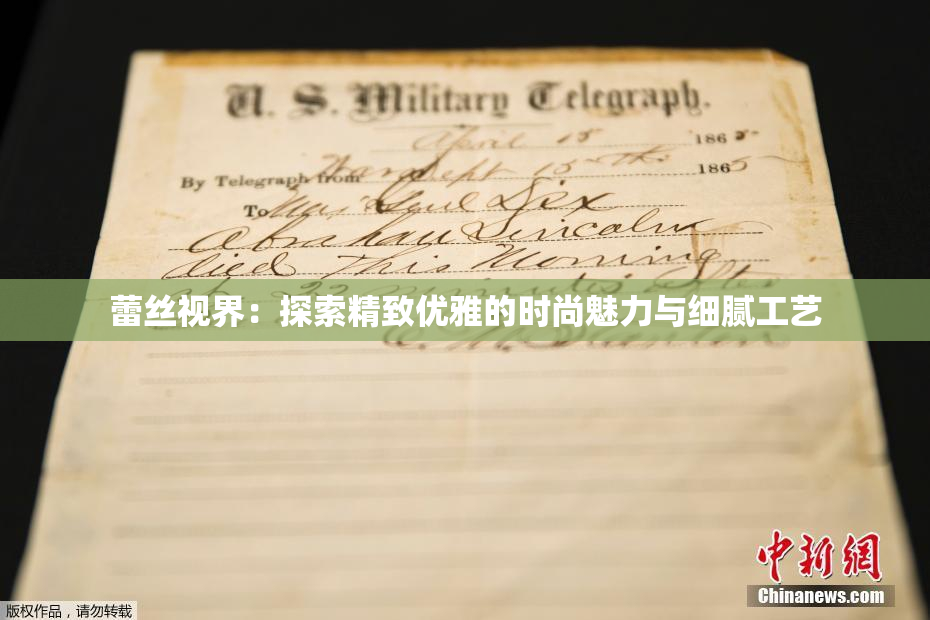 U. S. Military Telegraph.
April 15 1865
By Telegraph from War Dept 15th 1865
To Maj Genl Dix
Abraham Lincoln
died This Morning
at 22 minutes after
蕾丝视界：探索精致优雅的时尚魅力与细腻工艺
E. M. Stanton
中新网
Chinanews.com
版权作品，请勿转载